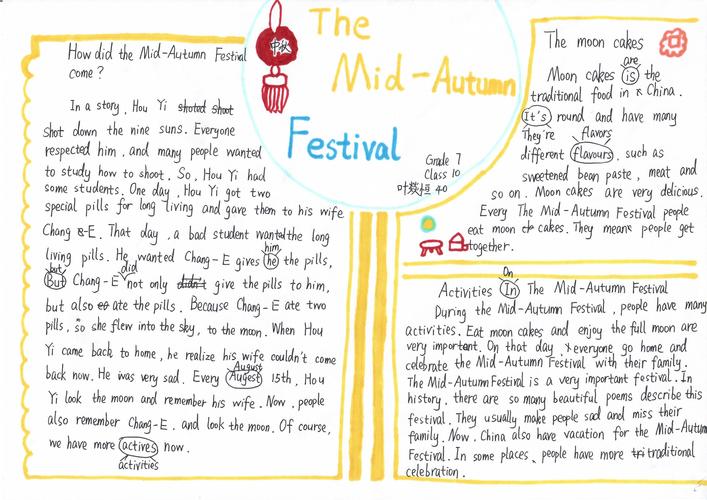 中秋
The
Mid-Autumn
Festival
Grade 7
Class 10
40
How did the Mid-Autumn Festival
come ?
In a story, Hou Yi shoted shoot
shot down the nine suns. Everyone
respected him, and many people wanted
to study how to shoot. So, Hou Yi had
some students. One day, Hou Yi got two
special pills for long living and gave them to his wife
Chang E. That day, a bad student wanted the long
him
living pills. He wanted Chang-E gives he the pills,
but did
But Chang-E not only didn't give the pills to him,
but also ate the pills. Because Chang-E ate two
pills, so she flew into the sky, to the moon. When Hou
Yi came back to home, he realize his wife couldn't come
August
back now. He was very sad. Every Augest 15th, Hou
Yi look the moon and remember his wife. Now, people
also remember Chang-E, and look the moon. Of course,
we have more actives now.
activities
The moon cakes
are
Moon cakes is the
traditional food in China.
It's round and have many
They're Flavors
different flavours, such as
sweetened bean paste, meat and
so on. Moon cakes are very delicious.
Every The Mid-Autumn Festival people
eat moon cakes. They means people get
together.
On
Activities In The Mid-Autumn Festival
During the Mid-Autumn Festival, people have many
activities. Eat moon cakes and enjoy the full moon are
very important. On that day, everyone go home and
celebrate the Mid-Autumn Festival with their family.
The Mid-Autumn Festival is a very important festival. In
history, there are so many beautiful poems describe this
festival. They usually make people sad and miss their
family. Now, China also have vacation for the Mid-Autumn
Festival. In some places, people have more tri traditional
celebration.